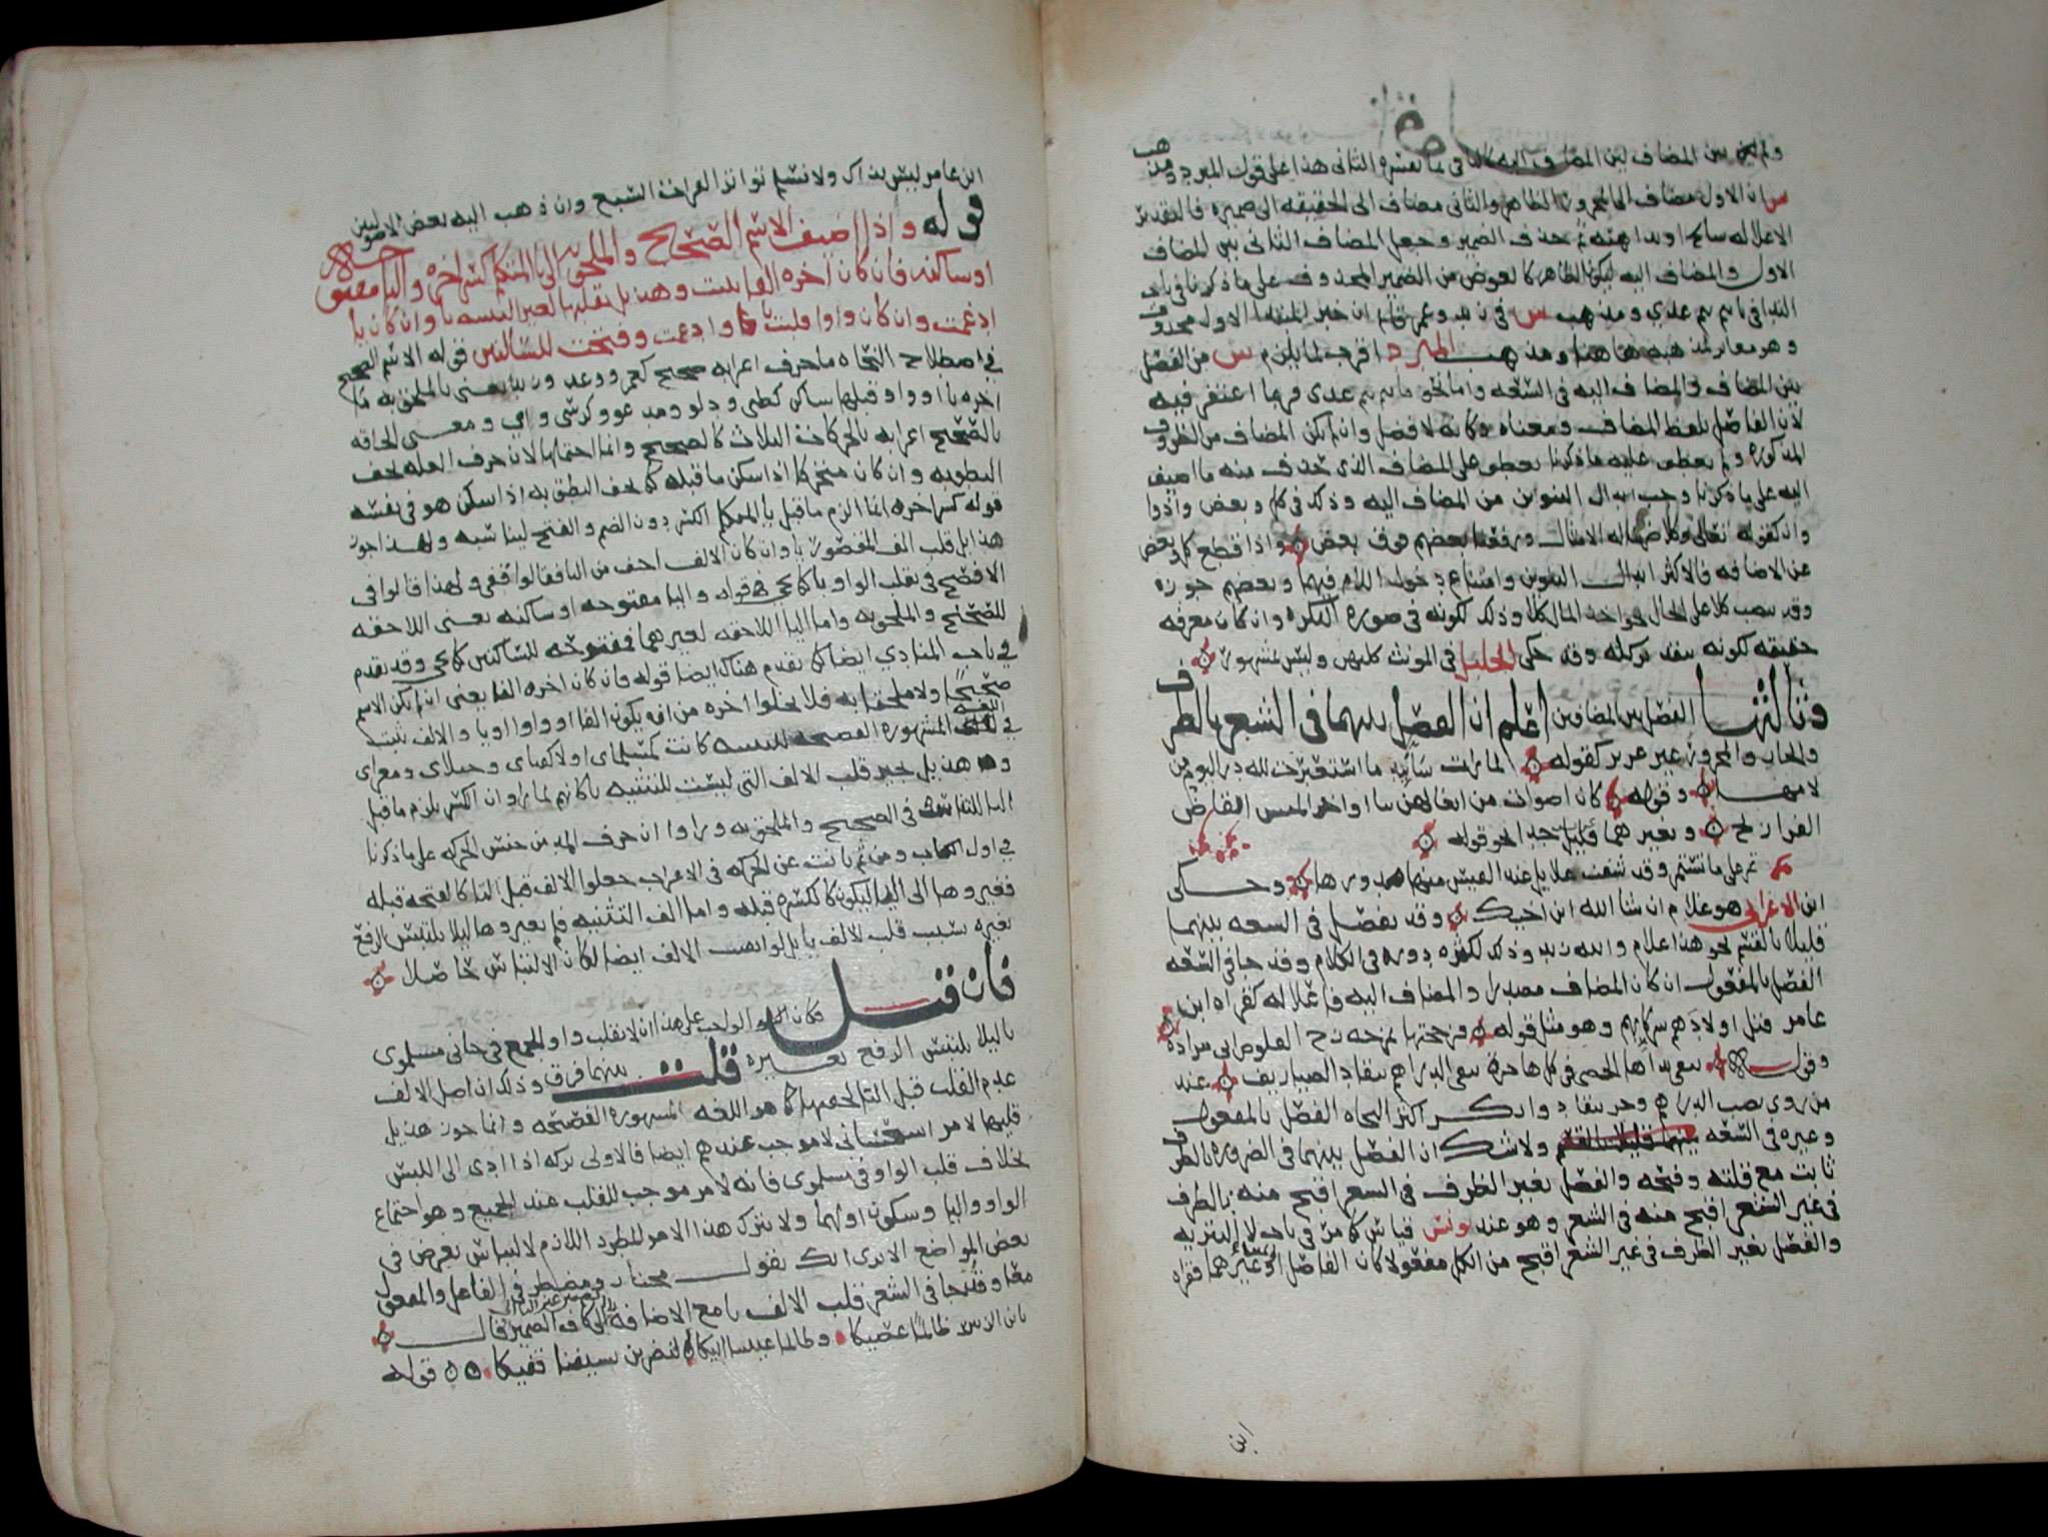 ولم يكن بين المضاف اليه فى لما يفسره الثانى هذا على قول المبرد ومذهب
س ان الاول مضاف الى المجرور الظاهر والثانى مضاف الى الحقيقه الى ضميره فالتقدير
الا علاله سابح او بداهته ثم حذف الضمير وجعل المضاف الثانى بين المضاف
الاول والمضاف اليه ليكون الظاهر كالعوض من الضمير المحذوف على ما ذكرنا فى باب
الندا فى يا تيم تيم عدي ومذهب س فى زيد وعمرو قايم ان خبر المبتدا الاول محذوف
وهو مغاير لمذهبه هاهنا ومذهب المبرد اقرب لما يلزم س من الفصل
بين المضاف والمضاف اليه فى السعه واما نحو يا تيم تيم عدى فربما اغتفر فيه
لان الفاصل بلفظ المضاف ومعناه وكانه لا فصل وان لم يكن المضاف من الظروف
المذكوره ولم يعطف عليه ما ذكرنا يعطف على المضاف الذى حذف منه ما اضيف
اليه على ما ذكرنا وجب ابدال التنوين من المضاف اليه وذلك فى كل وبعض واذ وا
وان كقوله تعالى وكلا ضربنا له الامثال ورفعنا بعضهم فوق بعض واذا قطع كل وبعض
عن الاضافه فالاكثر ابدال التنوين وامتناع دخول اللام فيهما وبعضهم جوزه
وقد ينصب كلا على الحال نحو اخذ المال كلا وذلك لكونه فى صورة النكره وان كان معرفه
حقيقه لكونه بتقدير كله وقد حكى الخليل فى المونث كلتهن وليس بمشهور
وثالثها الفصل بين المضافين اعلم ان الفصل بينهما فى الشعر بالظرف
والجار والمجرور غير عزيز كقوله لما رات ساتيد ما استعبرت لله در اليوم من
لامها وقوله كان اصوات من ايغالهن بنا اواخر الميس انقاض
الفراريج وبغيرهما قليل جدا نحو قوله
تمر على ما تستمر وقد شفت غلايل عبد القيس منها صدورها وحكى
ابن الاعرابى هو غلام ان شا الله ابن اخيك وقد يفصل فى السعه بينهما
قليلا بالقسم نحو هذا غلام والله زيد وذلك لكثره دوره فى الكلام وقد جا فى السعه
الفصل بالمفعول ان كان المضاف مصدرا والمضاف اليه فاعلا له كقراه ابن
عامر قتل اولادهم شركايهم وهو مثل قوله فزججتها بمزجه زج القلوص ابى مزاده
وقوله تنفى يداها الحصى فى كل هاجره نفى الدراهم تنقاد الصياريف عند
من روى بنصب الدراهم وجر تنقاد وانكر اكثر النحاه الفصل بالمفعول
وغيره فى السعه ولا شك ان الفصل بينهما فى الضروره بالظرف
ثابت مع قلته وقبحه والفصل بغير الظرف فى الشعر اقبح منه بالظرف
فى غير الشعر اقبح منه فى الشعر وهو عند يونس قياس كما مر فى باب لا التبريه
والفصل بغير الظرف فى غير الشعر اقبح من الكل مفعولا كان الفاصل او غيرهما فقراه
ابن
ابن عامر ليس بذاك ولا نسلم تواتر القراات السبع وان ذهب اليه بعض الاصوليين
قوله واذا اضيف الاسم الصحيح والملحق به الى يا المتكلم كسر اخره واليا مفتوحه
او ساكنه فان كان اخره الفا ثبتت وهذيل تقلبها لغير التثنيه يا وان كان يا
ادغمت وان كان واوا قلبت يا وادغمت وفتحت للساكنين قوله الاسم الصحيح
فى اصطلاح النحاه ما حرف اعرابه صحيح كعمرو ووعد وزيد يعنى بالملحق به ما
اخره يا او واو قبلها ساكن كظبى ودلو ومدعو وكرسى واي ومعنى الحاقه
بالصحيح اعرابه بالحركات الثلاث كالصحيح وانما احتملها لان حرف العله يخف
النطق به وان كان متحركا اذا سكن ما قبله كما يخف النطق به اذا سكن هو فى نفسه
قوله كسر اخره انما الزم ما قبل يا المتكلم الكسر دون الضم والفتح ليناسبه ولهذا جوز
هذيل قلب الف المقصور يا وان كان الالف اخف من اليا فقالوا قفى ولهذا قالوا فى
الافصح فى بقلب الواو يا كما يجى قوله واليا مفتوحه او ساكنه يعنى اللاحقه
للصحيح والملحق به واما اليا اللاحقه لغيرهما فمفتوحه للساكنين كما يجى وقد تقدم
فى باب المنادي ايضا كما تقدم هناك ايضا قوله فان كان اخره الفا يعنى ان لم يكن الاسم
صحيحا ولا ملحقا به فلا يخلوا اخره من ان يكون الفا او واوا او يا والالف تثبت
فى اللغه المشهوره الفصيحه للتثنيه كانت كمسلماى او لا كفتاى وحبلاى ومعزاى
وهذيل تجيز قلب الالف التى ليست للتثنيه يا كانهم لما راوا ان الكسر يلزم ما قبل
اليا للتناسب فى الصحيح والملحق به وراوا ان حرف المد من جنس الحركه على ما ذكرنا
فى اول الكتاب ومن ثم نابت عن الحركه فى الاعراب جعلوا الالف قبل اليا كالفتحه قبله
فغيروها الى اليا ليكون كالكسره قبله واما الف التثنيه فلم يغيروها ليلا يلتبس الرفع
بغيره بسبب قلب الالف يا بل لو انهب الالف ايضا لكان الالتباس حاصلا
فان قيل فكان الواجب على هذا ان لا تقلب واو الجمع فى جانى مسلموى
يا ليلا يلتبس الرفع بغيره قلت بينهما فرق وذلك ان اصل الالف
عدم القلب قبل اليا لخفتها كما هو اللغه المشهوره الفصيحه وانما جوز هذيل
قلبها لامر استحسانى لا موجب عندهم ايضا فالاولى تركه اذا ادى الى اللبس
بخلاف قلب الواو فى مسلموى فانه لامر موجب للقلب عند الجميع وهو اجتماع
الواو واليا وسكون اولهما ولا يترك هذا الامر المطرد اللازم لالتباس يعرض فى
بعض المواضع الا ترى انك تقول مختار ومضطر فى الفاعل والمفعول
معا وقد جا فى الشعر قلب الالف يا مع الاضافه الى كاف الضمير قال
يا ابن الزبير طالما عصيكا وطالما عنيتنا اليكا لنضربن بسيفنا قفيكا قوله